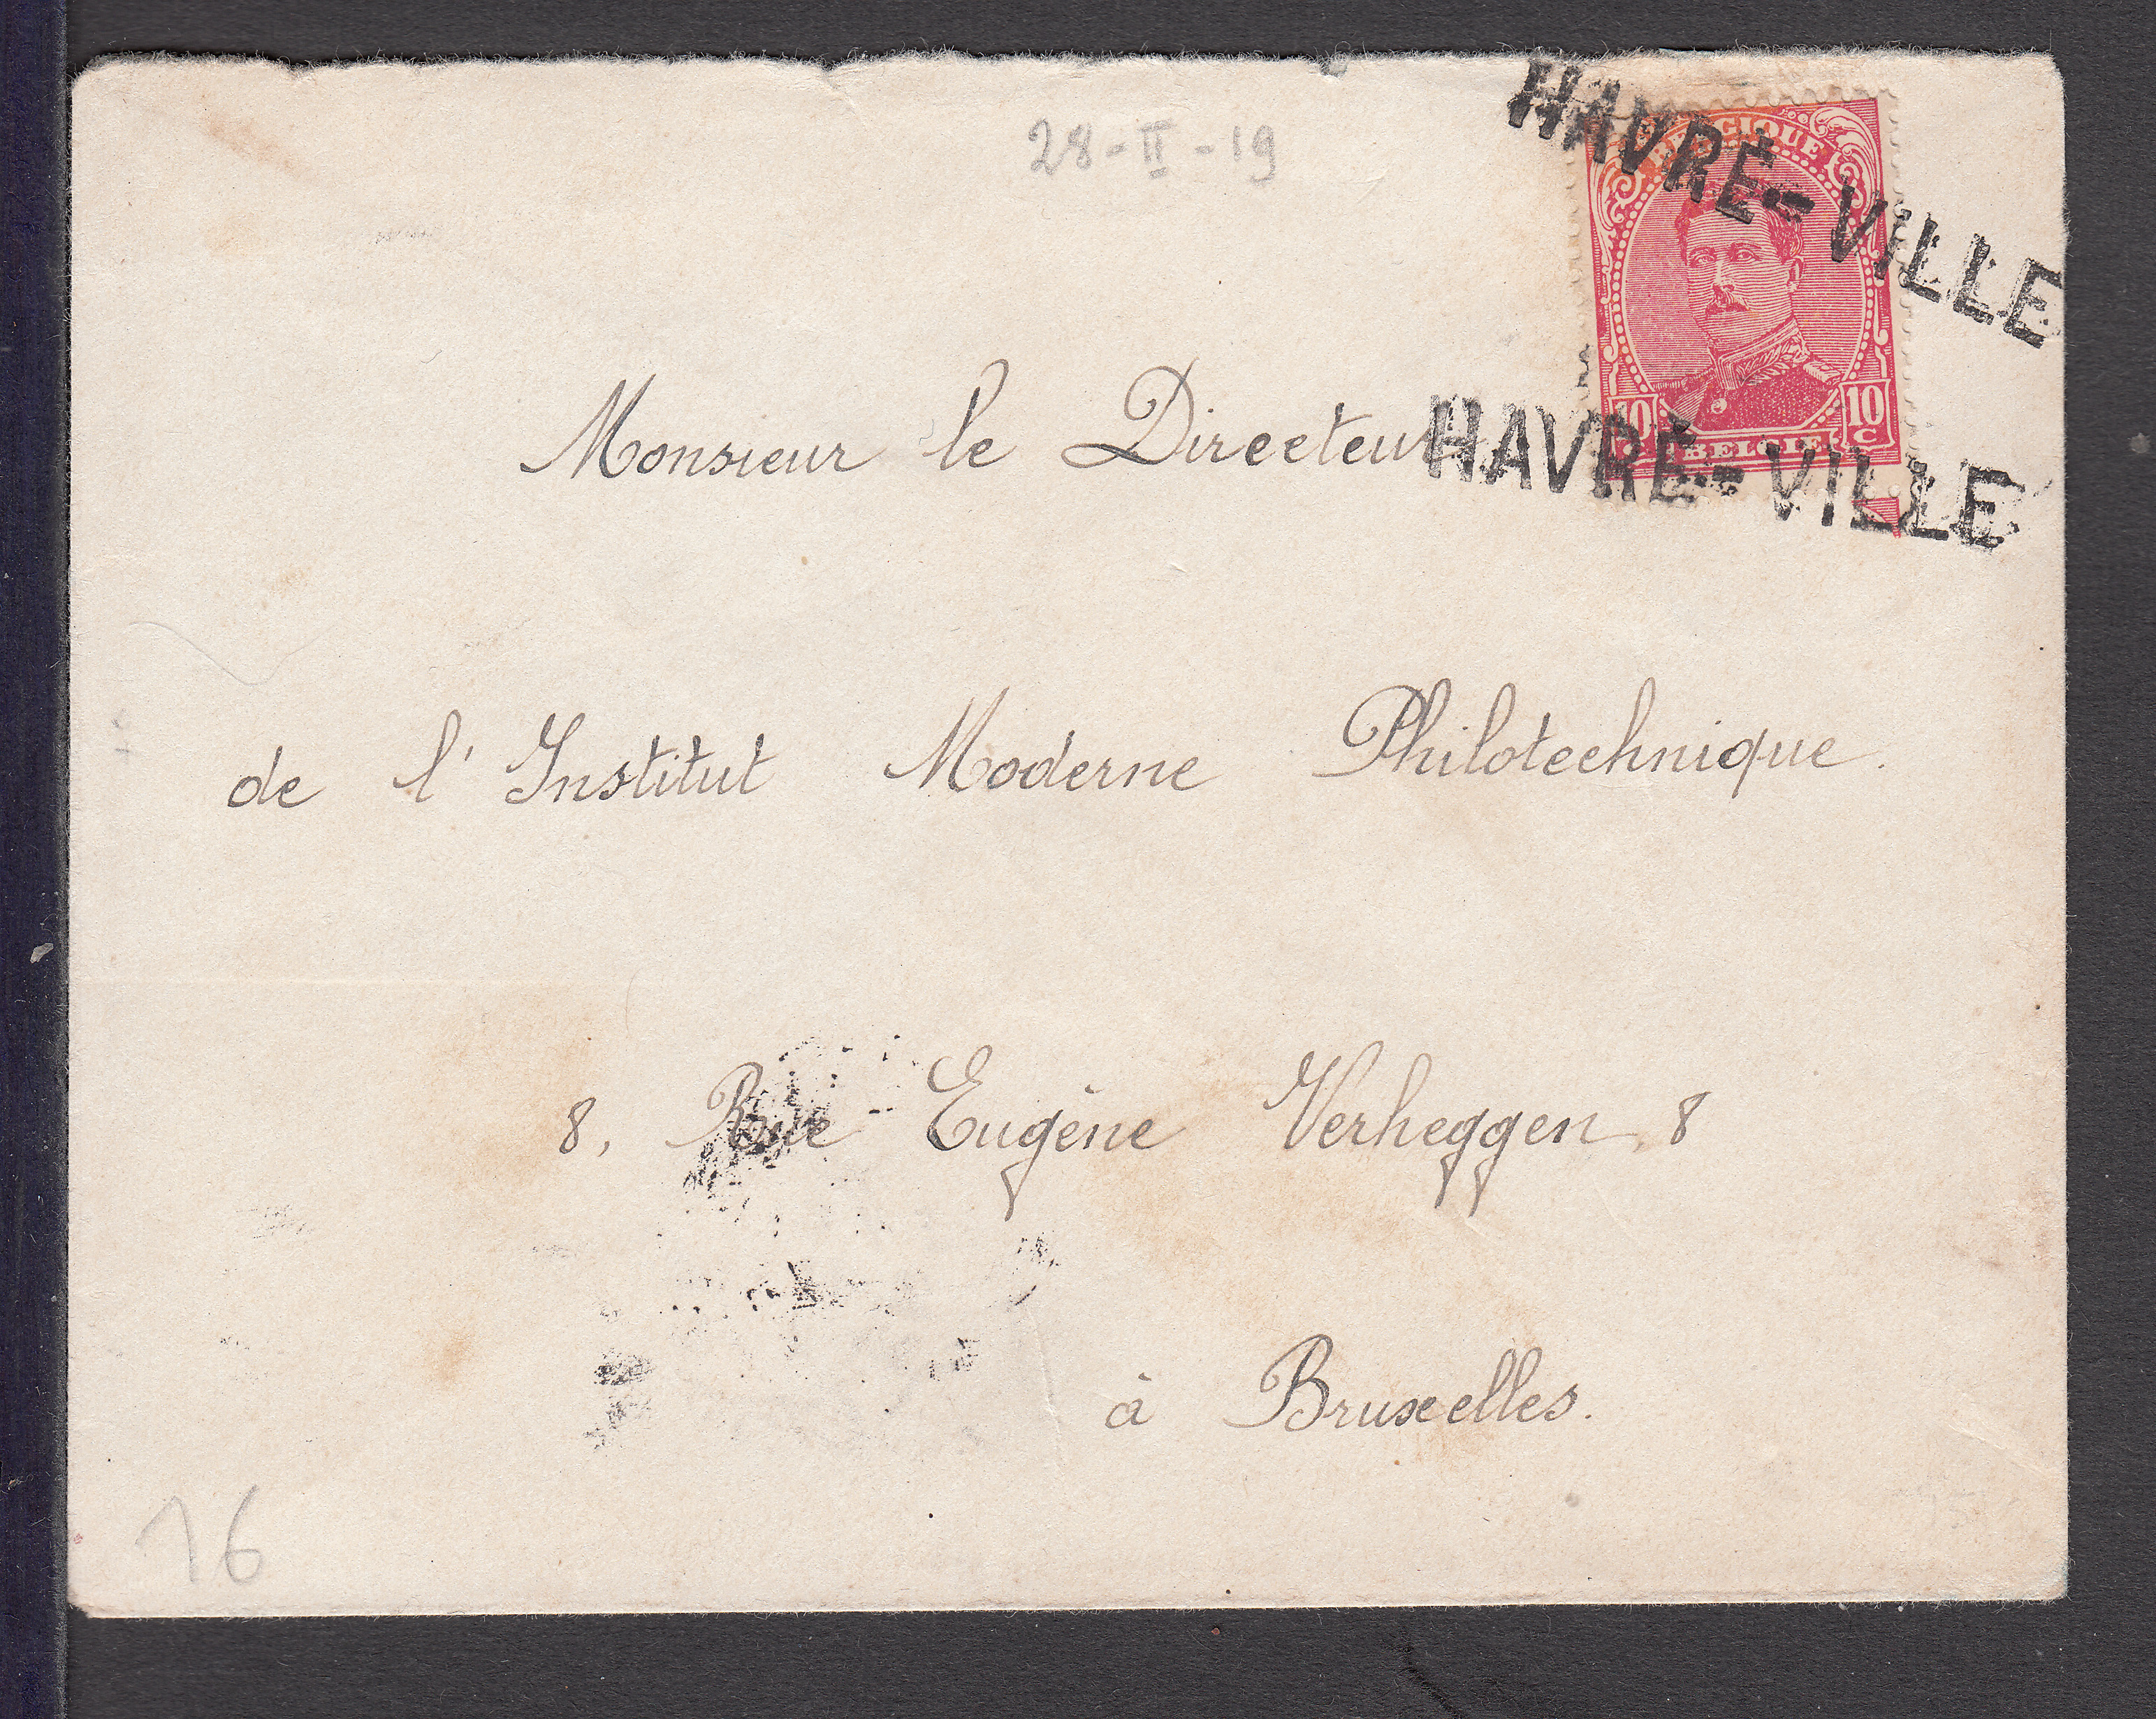 28-II-19
HAVRÉ-VILLE
BELGIQUE
10 10 c
BELGIE
HAVRÉ-VILLE
Monsieur le Directeur
de l'Institut Moderne Philotechnique.
8, Rue Eugène Verheggen, 8
à Bruxelles.
16